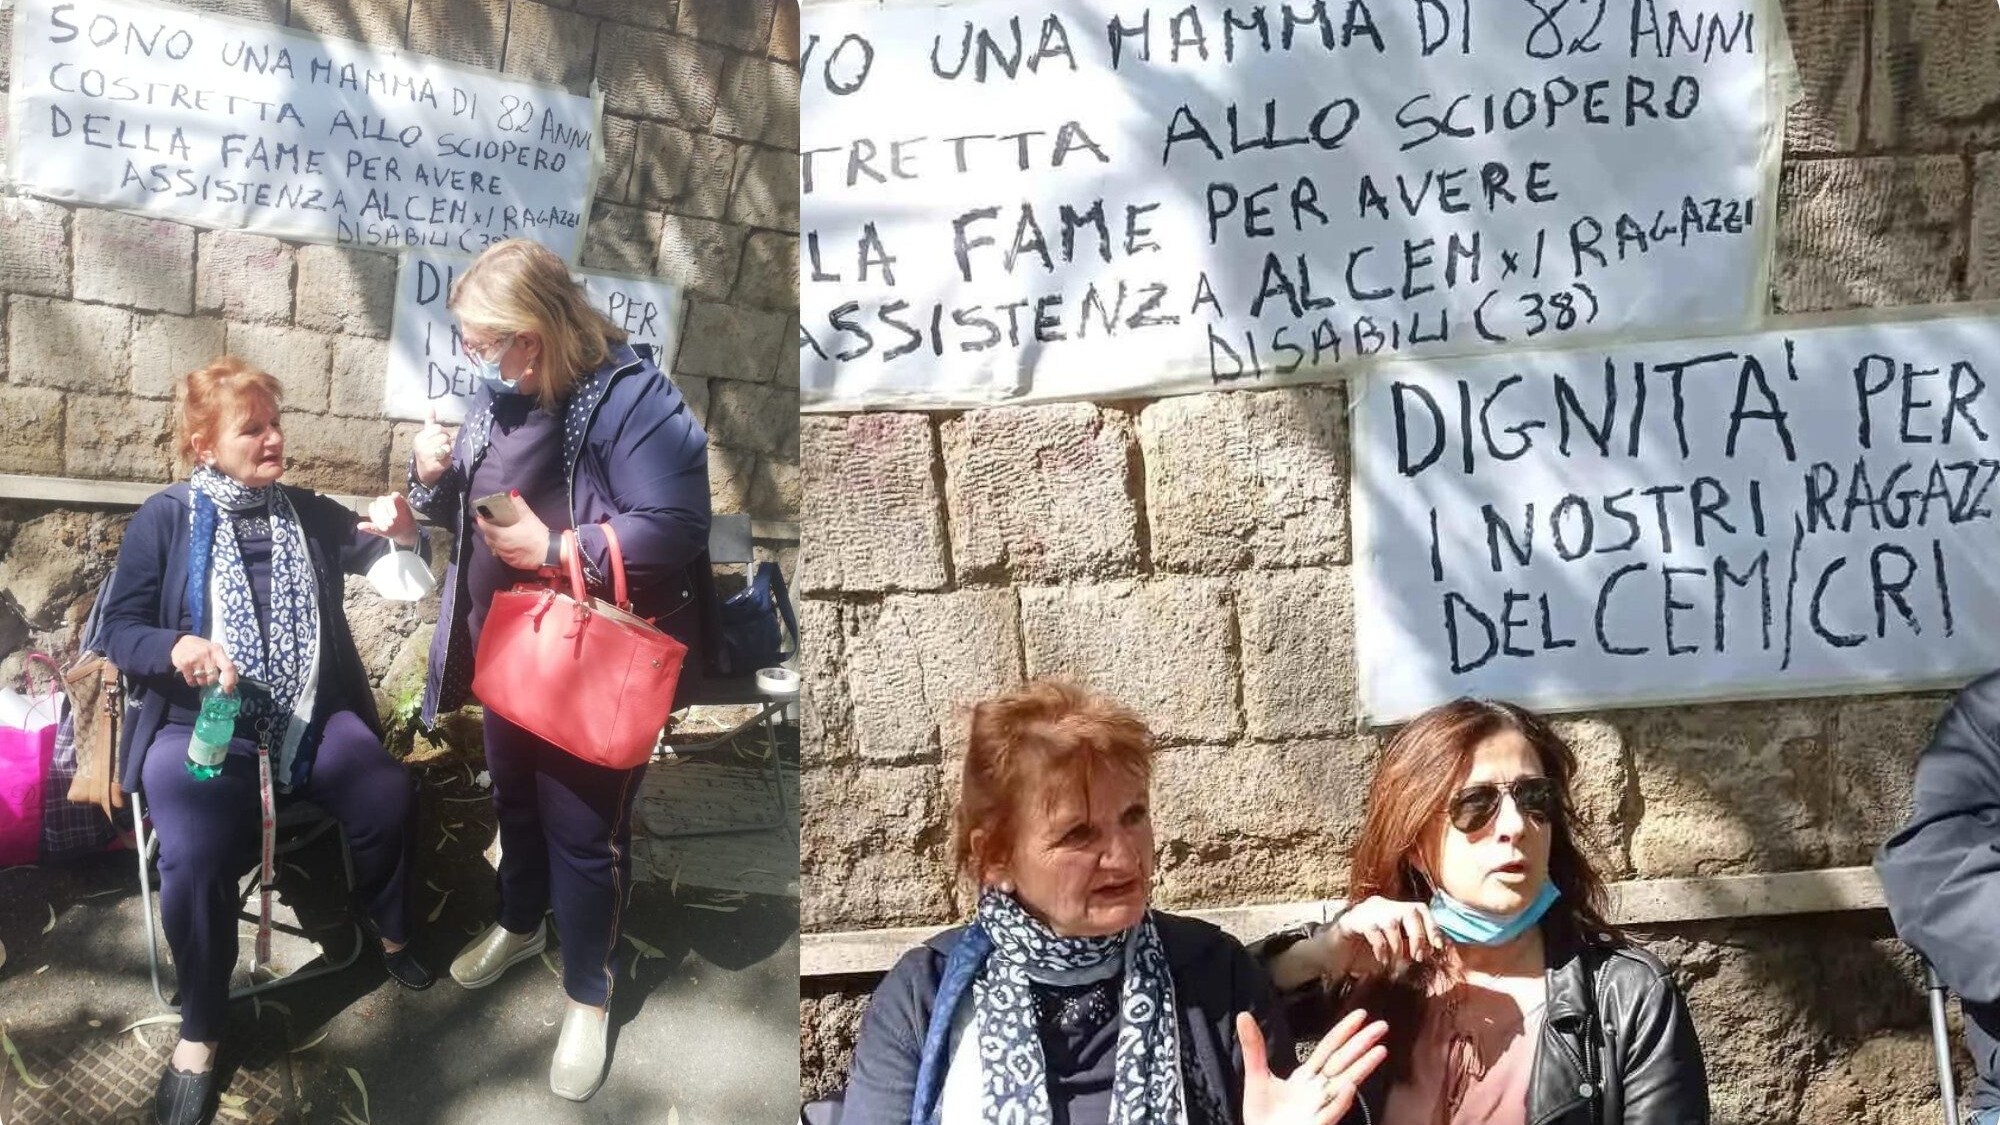 SONO UNA MAMMA DI 82 ANNI
COSTRETTA ALLO SCIOPERO
DELLA FAME PER AVERE
ASSISTENZA AL CEM x I RAGAZZI
DISABILI (38
PER
I N
DEL
NO UNA MAMMA DI 82 ANNI
TRETTA ALLO SCIOPERO
LA FAME PER AVERE
ASSISTENZA AL CEM x I RAGAZZI
DISABILI (38)
DIGNITA' PER
I NOSTRI RAGAZZ
DEL CEM/CRI